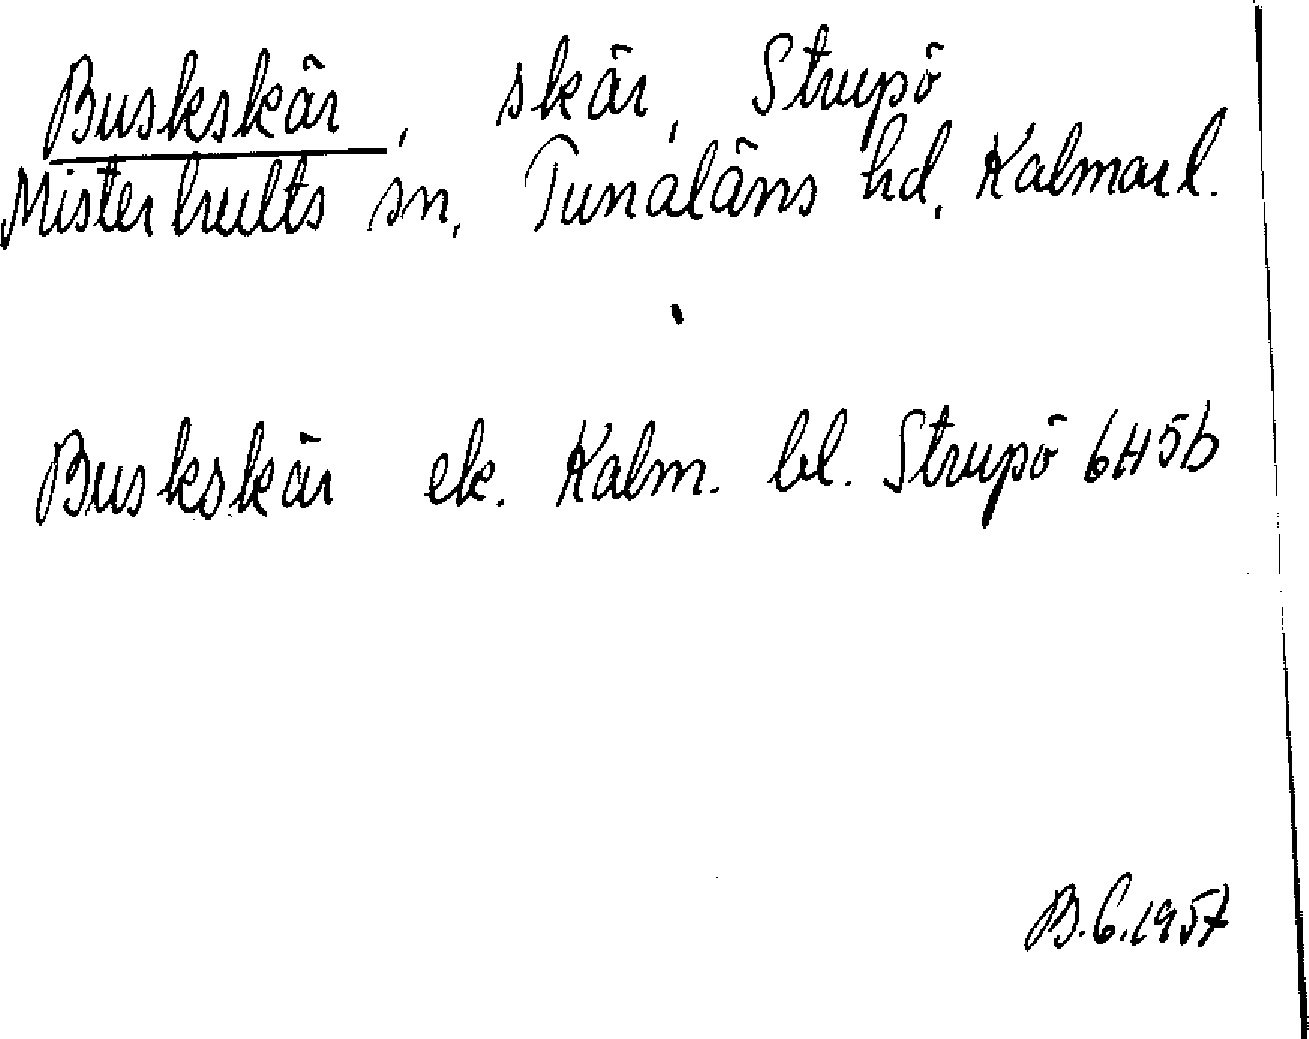 Buskskär, skär, Strupö
Misterhults sn. Tunaläns hd. Kalmar l.
Buskskär ek. Kalm. bl. Strupö 6H5b
B.G.1957